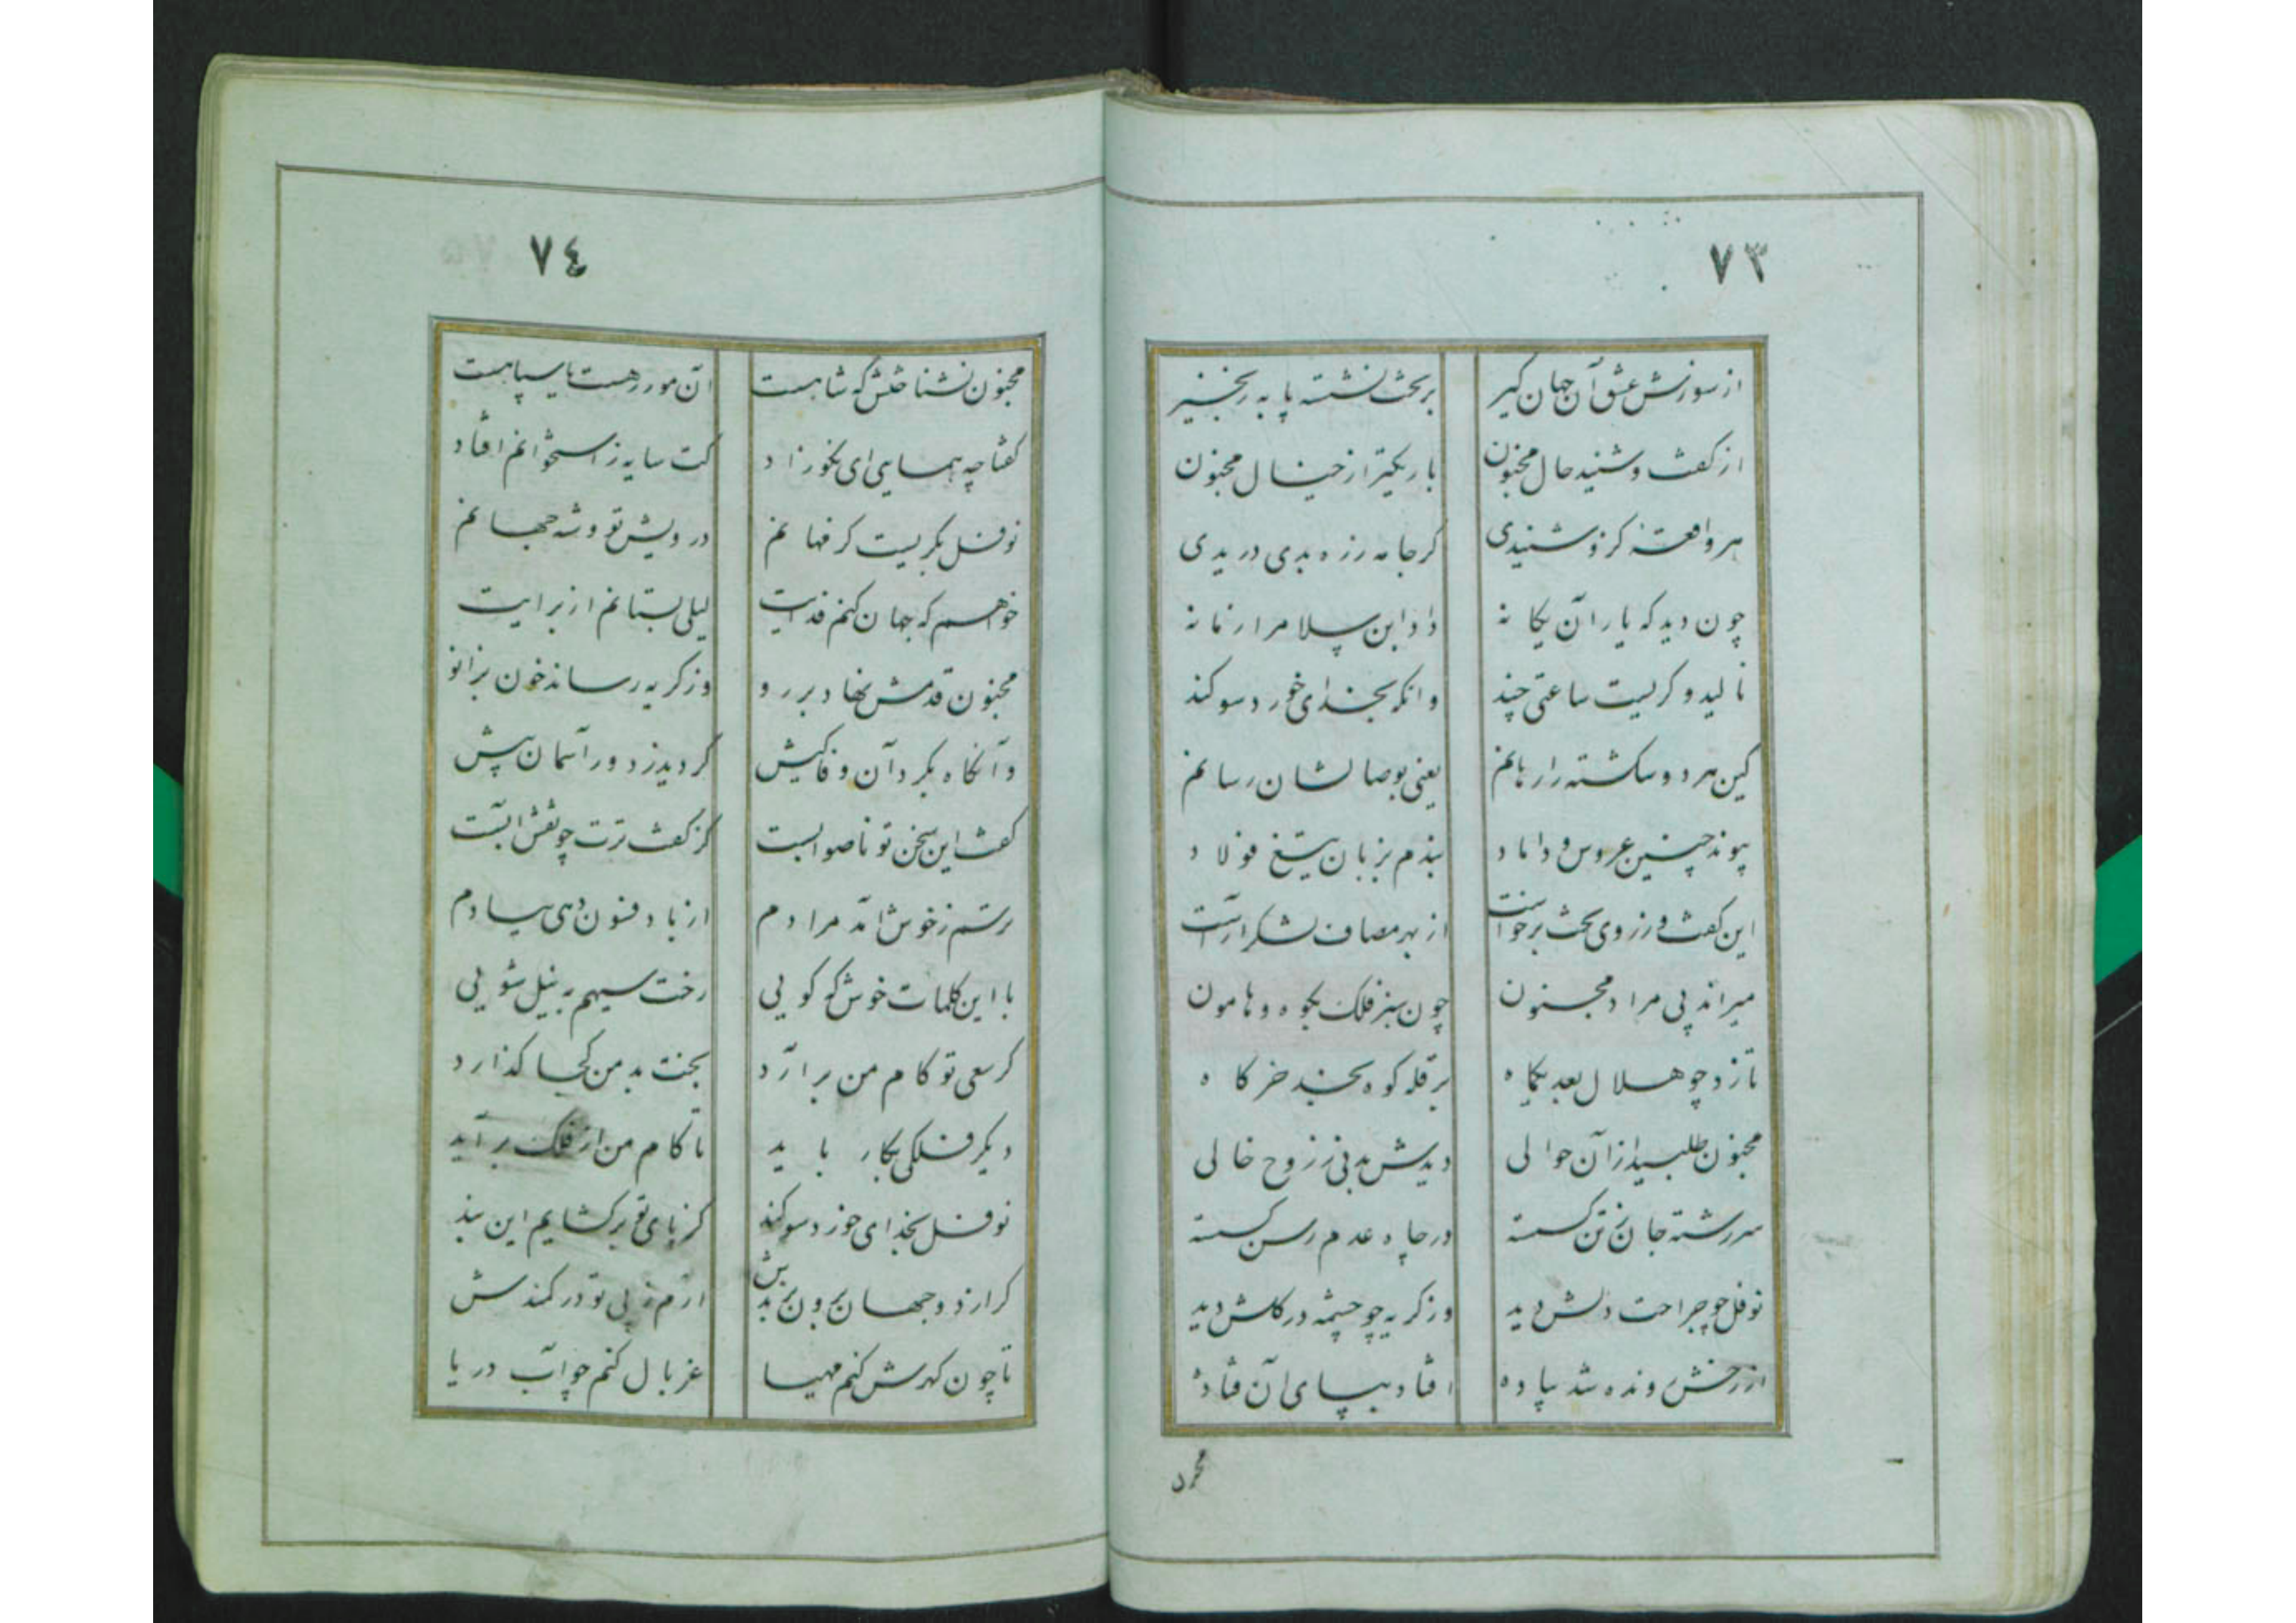 ٧٣
از سوزش عشق آن جهان گیر بر تخت نشسته پا به زنجیر
از گفت و شنید حال مجنون باریکتر از خیال مجنون
هر واقعه کزو شنیدی گر جامه زره بدی دریدی
چون دید که یار آن یگانه داد این سلا مرا زمانه
نالید و گریست ساعتی چند وانگه بخدای خورد سوگند
کین هر دو شکسته را رهانم یعنی بوصالشان رسانم
پیوند چنین عروس و داماد بندم بزبان تیغ فولاد
این گفت و ز روی تخت برخواست از بهر مصاف لشکر آراست
میراند پی مراد مجنون چون سبز فلک بکوه و هامون
تا زد چو هلال بعد یکماه بر قله کوه نجد خرگاه
مجنون طلبید از آن حوالی دیدش بدنی ز روح خالی
سر رشته جان ز تن گسسته در چاه عدم رسن گسسته
نوفل چو جراحت دلش دید وز گریه چو چشمه در گلش دید
از رخش رونده شد پیاده افتاد بپای آن فتاده
مجنون
٧٤
مجنون نشناختش که شاهست آن مور رهست یا سپاهست
گفتا چه همایی ای نکوزاد کت سایه ز استخوانم افتاد
نوفل بگریست کز فهانم درویش تو و شه جهانم
خواهم که جهان کنم فدایت لیلی بستانم از برایت
مجنون قدمش نهاد بر رو وز گریه رساند خون بزانو
وآنگاه بگرد آن وفا کیش گردید ز دور آسمان پیش
گفت این سخن تو ناصوابست کز گفت ترت چو نقش آبست
ترسم ز خوش آمد مرادم از باد فسون دهی بیادم
با این کلمات خوش که گویی رخت سیهم به نیل شویی
گر سعی تو کام من برآرد بخت بد من کجا گذارد
دیگر فلکی بکار باید تا کام من از فلک برآید
نوفل بخدای خورد سوگند کز پای تو برگشایم این بند
گر از دو جهان برون بزندش آرم ز پی تو در کمندش
تا چون گهرش کنم مهیا غربال کنم چو آب دریا